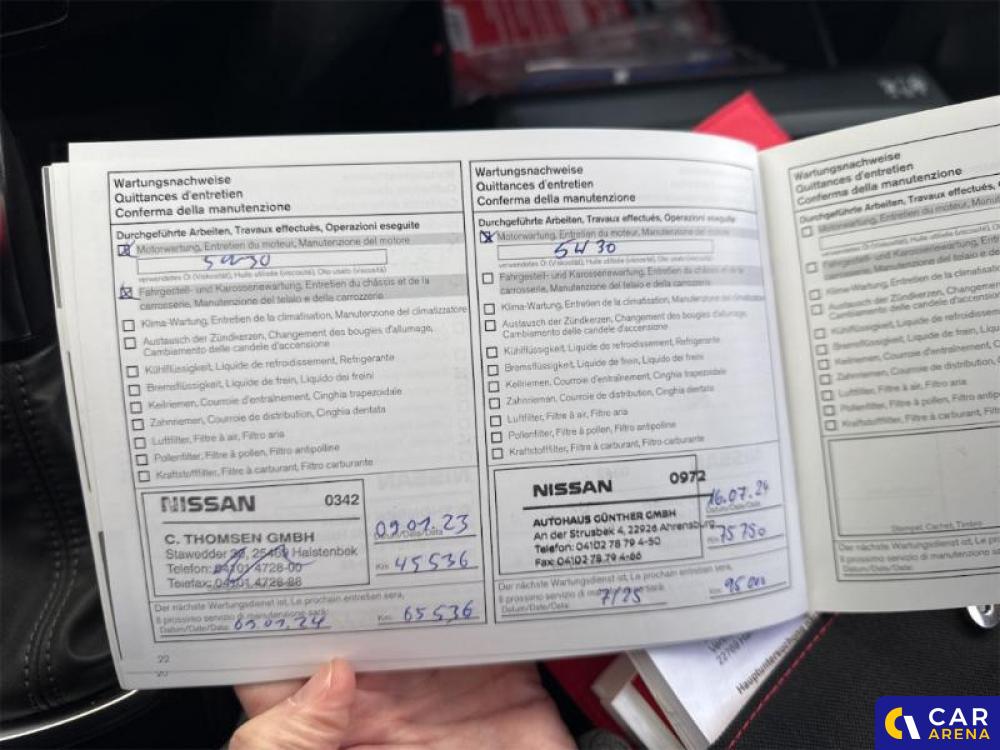 Wartungsnachweise
Quittances d'entretien
Conferma della manutenzione
Durchgeführte Arbeiten, Travaux effectués, Operazioni eseguite
Motorwartung, Entretien du moteur, Manutenzione del motore
5W30
verwendetes Öl (Viskosität), Huile utilisée (viscosité), Olio usato (viscosità)
Fahrgestell- und Karosseriewartung, Entretien du châssis et de la
carrosserie, Manutenzione del telaio e della carrozzeria
Klima-Wartung, Entretien de la climatisation, Manutenzione del climatizzatore
Austausch der Zündkerzen, Changement des bougies d'allumage,
Cambiamento delle candele d'accensione
Kühlflüssigkeit, Liquide de refroidissement, Refrigerante
Bremsflüssigkeit, Liquide de frein, Liquido dei freini
Keilriemen, Courroie d'entraînement, Cinghia trapezoidale
Zahnriemen, Courroie de distribution, Cinghia dentata
Luftfilter, Filtre à air, Filtro aria
Pollenfilter, Filtre à pollen, Filtro antipolline
Kraftstofffilter, Filtre à carburant, Filtro carburante
NISSAN 0342
C. THOMSEN GMBH
Stawedder 25469 Halstenbok
Telefon: 04101 4728-00
Telefax: 04101 4728-88
09.01.23
Km 45536
Der nächste Wartungsdienst ist, Le prochain entretien sera,
Il prossimo servizio di manutenzione sarà:
Datum/Date/Data: 09.01.24 Km: 65536
22
Wartungsnachweise
Quittances d'entretien
Conferma della manutenzione
Durchgeführte Arbeiten, Travaux effectués, Operazioni eseguite
Motorwartung, Entretien du moteur, Manutenzione del motore
5W30
verwendetes Öl (Viskosität), Huile utilisée (viscosité), Olio usato (viscosità)
Fahrgestell- und Karosseriewartung, Entretien du châssis et de la
carrosserie, Manutenzione del telaio e della carrozzeria
Klima-Wartung, Entretien de la climatisation, Manutenzione del climatizzatore
Austausch der Zündkerzen, Changement des bougies d'allumage,
Cambiamento delle candele d'accensione
Kühlflüssigkeit, Liquide de refroidissement, Refrigerante
Bremsflüssigkeit, Liquide de frein, Liquido dei freini
Keilriemen, Courroie d'entraînement, Cinghia trapezoidale
Zahnriemen, Courroie de distribution, Cinghia dentata
Luftfilter, Filtre à air, Filtro aria
Pollenfilter, Filtre à pollen, Filtro antipolline
Kraftstofffilter, Filtre à carburant, Filtro carburante
NISSAN 0972
AUTOHAUS GÜNTHER GMBH
An der Strusbek 4, 22926 Ahrensburg
Telefon: 04102 78 79 4-50
Fax: 04102 78 79 4-66
16.07.24
Datum/Date/Data
Km 75750
Der nächste Wartungsdienst ist, Le prochain entretien sera,
Il prossimo servizio di manutenzione sarà:
Datum/Date/Data: 7/25 Km: 95000
Wartungsnachweise
Quittances d'entretien
Conferma della manutenzione
Durchgeführte Arbeiten, Travaux effectués,
Motorwartung, Entretien du moteur,
Fahrgestell- und Karosseriewartung,
Klima-Wartung, Entretien de la climatisation,
Austausch der Zündkerzen,
Cambiamento delle candele
Kühlflüssigkeit, Liquide de
Bremsflüssigkeit, Liquide de frein,
Keilriemen, Courroie
Zahnriemen, Courroie de distribution,
Luftfilter, Filtre à air, Filtro aria
Pollenfilter, Filtre à pollen, Filtro
Kraftstofffilter, Filtre à carburant,
Stempel, Cachet, Timbro
Der nächste Wartungsdienst ist, Le
Il prossimo servizio di manutenzione
Datum/Date/Data:
Hauptuntersuchung
CAR
ARENA